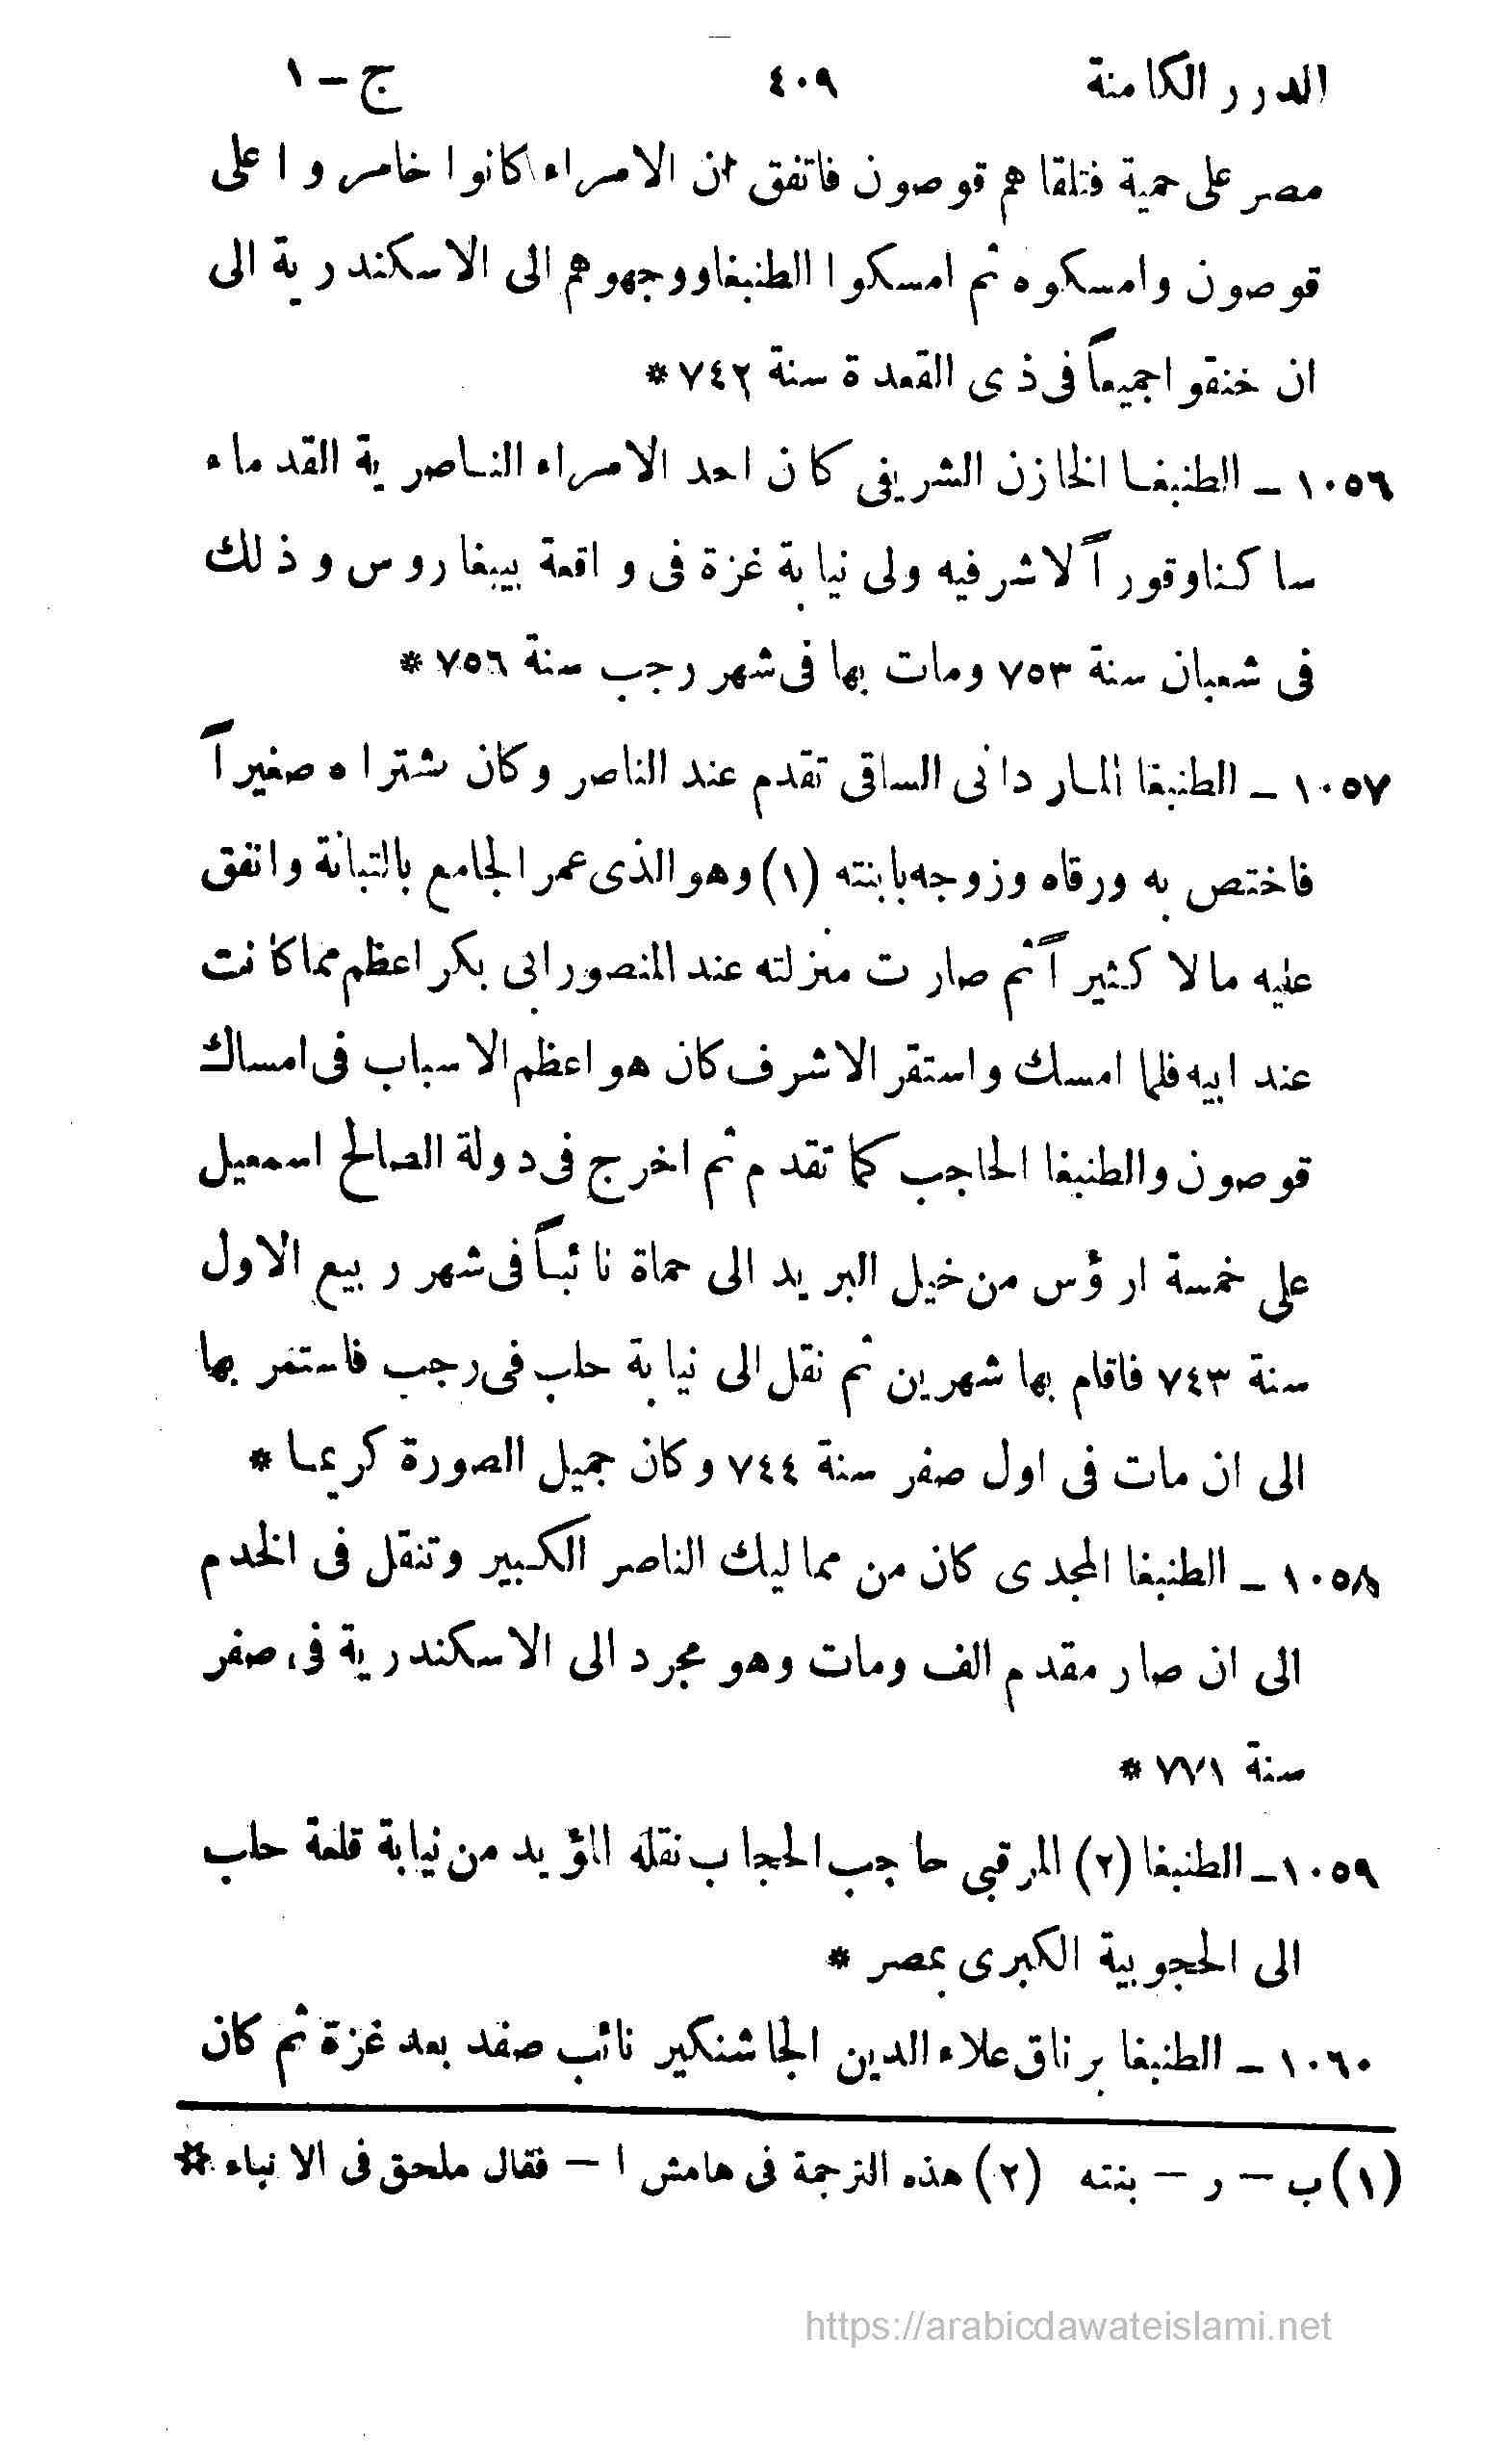 الدرر الكامنة ٤٠٩ ج - ١
مصر على حمية فتلقاهم قوصون فاتفق ان الامراء كانوا خامروا على
قوصون وامسكوه ثم امسكوا الطنبغا ووجهوهم الى الاسكندرية الى
ان خنقوا جميعاً فى ذى القعدة سنة ٧٤٢ *
١٠٥٦ - الطنبغا الخازن الشريفى كان احد الامراء الناصرية القدماء
ساكنا وقوراً لا شر فيه ولى نيابة غزة فى واقعة بيبغا روس وذلك
فى شعبان سنة ٧٥٣ ومات بها فى شهر رجب سنة ٧٥٦ *
١٠٥٧ - الطنبغا الماردانى الساقى تقدم عند الناصر وكان شتراه صغيراً
فاختص به ورقاه وزوجه بابنته (١) وهو الذى عمر الجامع بالتبانة واتفق
عليه مالا كثيراً ثم صارت منزلته عند المنصور ابى بكر اعظم مما كانت
عند ابيه فلما امسك واستقر الاشرف كان هو اعظم الاسباب فى امساك
قوصون والطنبغا الحاجب كما تقدم ثم اخرج فى دولة الصالح اسمعيل
على خمسة ارؤس من خيل البريد الى حماة نائباً فى شهر ربيع الاول
سنة ٧٤٣ فاقام بها شهرين ثم نقل الى نيابة حلب فى رجب فاستمر بها
الى ان مات فى اول صفر سنة ٧٤٤ وكان جميل الصورة كريما *
١٠٥٨ - الطنبغا المجدى كان من مماليك الناصر الكبير وتنقل فى الخدم
الى ان صار مقدم الف ومات وهو مجرد الى الاسكندرية فى صفر
سنة ٧٧١ *
١٠٥٩ - الطنبغا (٢) المرقبى حاجب الحجاب نقله المؤيد من نيابة قلعة حلب
الى الحجوبية الكبرى بمصر *
١٠٦٠ - الطنبغا برناق علاء الدين الجاشنكير نائب صفد بعد غزة ثم كان
(١) ب - ر - بنته (٢) هذه الترجمة فى هامش ا - فقال ملحق فى الانباء *
https://arabicdawateislami.net